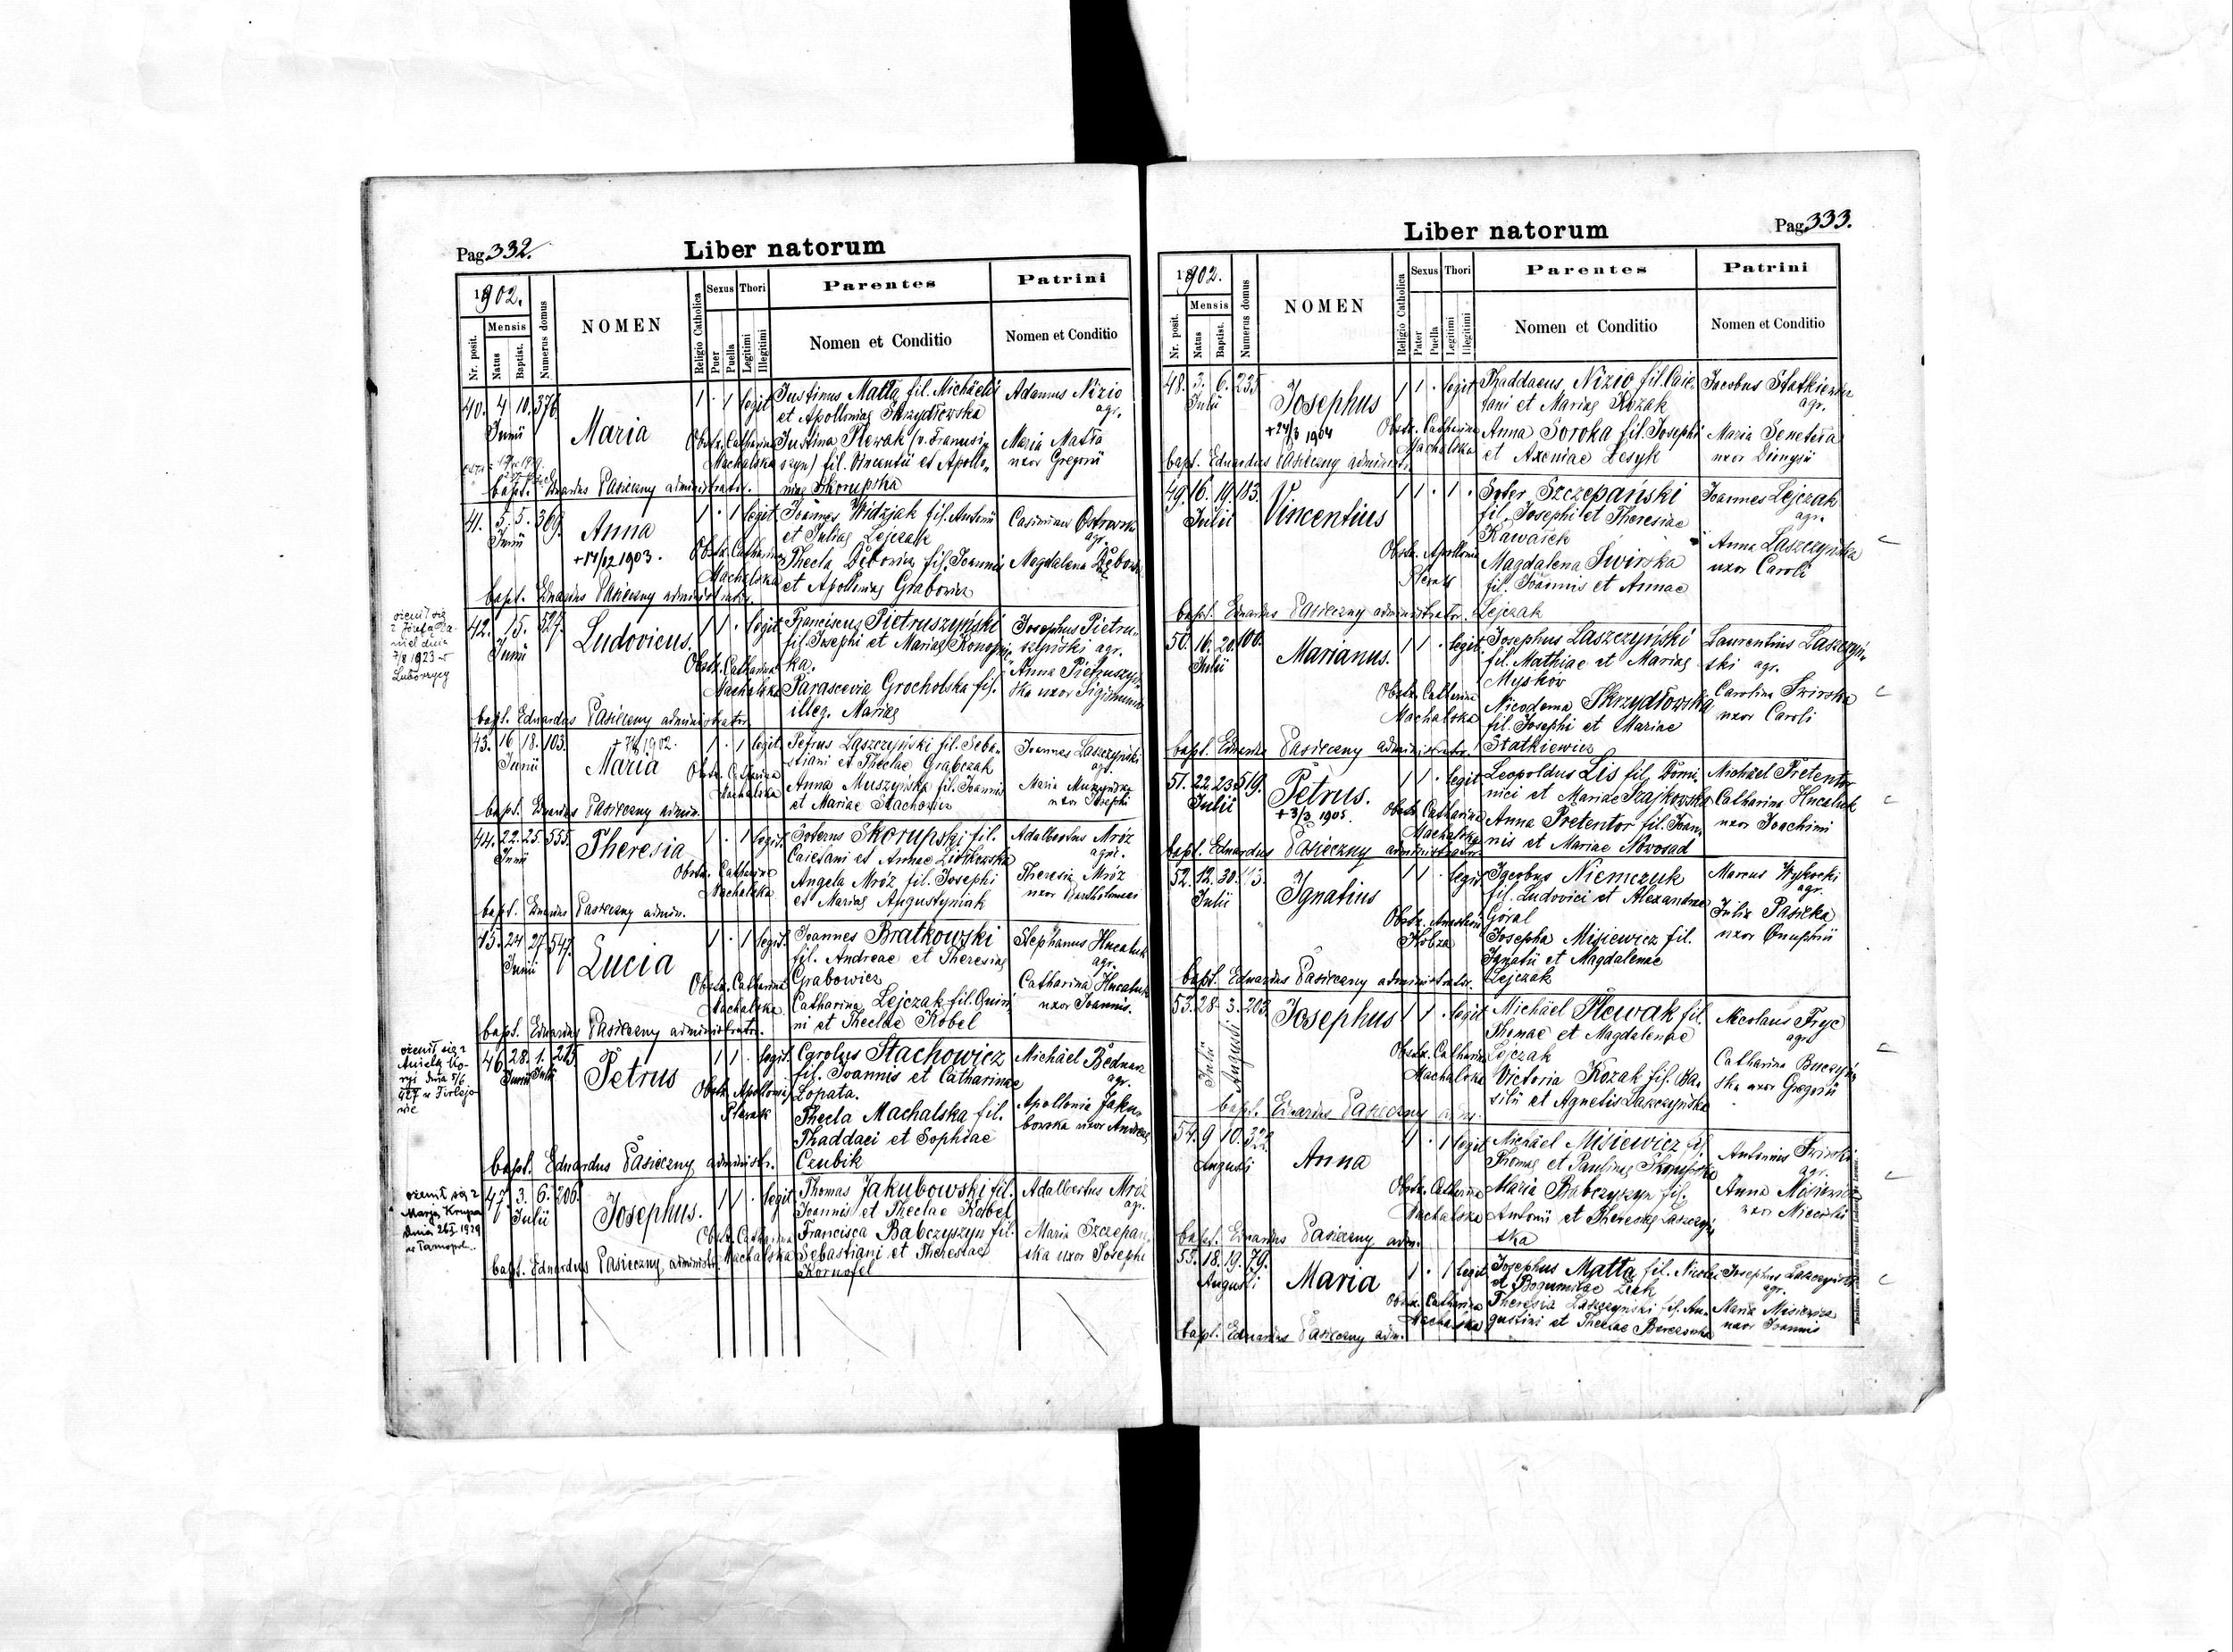 Pag. 332.
Liber natorum
1902.
Nr. posit.
Mensis
Natus
Baptist.
Numerus domus
NOMEN
Religio Catholica
Sexus
Puer
Puella
Thori
Legitimi
Illegitimi
Parentes
Nomen et Conditio
Patrini
Nomen et Conditio
40. 4 10. 376.
Junii
Maria
1 . 1 legit
Justinus Matla fil. Michaelis
et Apolloniae Skrzydłowska
Justina Plewak (v. Franusi
szyn) fil. Vincentii et Apollo
niae Skorupska
Obstr. Catharina
Machalska
Adamus Nizio
agr.
Maria Matla
uxor Gregorii
bapt. Eduardus Pasieczny administrator.
41. 5. 5. 369.
Junii
Anna
+17/12 1903.
1 . 1 legit
Joannes Widzjak fil. Antonii
et Juliae Lejczak
Thecla Dębowicz fil. Joannis
et Apolloniae Grabowicz
Obstr. Catharina
Machalska
Casimirus
agr.
Magdalena
bapt. Eduardus Pasieczny administrator.
ożenił się
z Józefą
dnia
7/8 1923 w
42. 15. 527.
Junii
Ludovicus.
1 1 . legit
Franciscus Pietruszyński
fil. Josephi et Mariae Konop
ka.
Parascevia Grocholska fil.
illeg. Mariae
Obstr. Catharina
Machalska
Josephus Pietru
szyński agr.
Anna Pietruszyń
ska uxor Sigismundi
bapt. Eduardus Pasieczny administrator
43. 16. 18. 103.
Junii
1902.
Maria
1 . 1 legit
Petrus Laszczyński fil. Seba-
stiani et Theclae Grabczak
Anna Muszyńska fil. Joannis
et Mariae Stachowicz
Obstr. Catharina
Machalska
Joannes Laszczyński
agr.
Maria Muszyńska
uxor Josephi
bapt. Eduardus Pasieczny admin.
44. 22. 25. 555.
Junii
Theresia
1 . 1 legit.
Soterus Skorupski fil.
Caietani et Annae
Angela Mróz fil. Josephi
et Mariae Augustyniak
Obstr. Catharina
Machalska
Adalbertus Mróz
agr.
Theresia Mróz
uxor Bartholomaei
bapt. Eduardus Pasieczny admin.
45. 24 27. 547.
Junii
Lucia
1 . 1 legit.
Joannes Bratkowski
fil. Andreae et Theresiae
Grabowicz
Catharina Lejczak fil. Quiri
ni et Theclae Kobel
Obstr. Catharina
Machalska
Stephanus Hucaluk
agr.
Catharina Hucaluk
uxor Joannis.
bapt. Eduardus Pasieczny administrator.
ożenił się z
Anielą
dnia 5/6
927 w
46. 28. 1. 215
Junii Julii
Petrus
1 1 . legit.
Carolus Stachowicz
fil. Joannis et Catharinae
Lopata.
Thecla Machalska fil.
Thaddaei et Sophiae
Czubik
Obstr. Apollonia
Plewak
Michäel Bednarz
agr.
Apollonia Jaku
bowska uxor Andreae
bapt. Eduardus Pasieczny administr.
ożenił się z
Marją Krupa
dnia 26/I 1929
w Tarnopol
47. 3. 6. 206.
Julii
Josephus.
1 1 . legit
Thomas Jakubowski fil.
Joannis et Theclae Kobel
Francisca Babczyszyn fil.
Sebastiani et Theresiae
Kornafel
Obstr. Catharina
Machalska
Adalbertus Mróz
agr.
Maria Szczepań
ska uxor Josephi
bapt. Eduardus Pasieczny administr.
Pag. 333.
Liber natorum
1902.
Nr. posit.
Mensis
Natus
Baptist.
Numerus domus
NOMEN
Religio Catholica
Sexus
Puer
Puella
Thori
Legitimi
Illegitimi
Parentes
Nomen et Conditio
Patrini
Nomen et Conditio
48. 3. 6. 235
Julii
Josephus
+24/3 1904
1 1 . legit
Thaddaeus Nizio fil. Caie-
tani et Mariae Kozak
Anna Soroka fil. Josephi
et Axeniae Lesyk
Obstr. Catharina
Machalska
Jacobus Statkiewicz
agr.
Maria Senetera
uxor Dionysii
bapt. Eduardus Pasieczny administr.
49. 16. 19. 183.
Julii
Vincentius
1 1 . 1 .
Soter Szczepański
fil. Josephi et Theresiae
Kawałek
Magdalena Swirska
fil. Joannis et Annae
Lejczak
Obstr. Apollonia
Plewak
Joannes Lejczak
agr.
Anna Laszczyńska
uxor Caroli
bapt. Eduardus Pasieczny administrator.
50. 16. 20. 106.
Julii
Marianus.
1 1 . legit.
Josephus Laszczyński
fil. Mathiae et Mariae
Myśków
Nicodema Skrzydłowska
fil. Josephi et Mariae
Statkiewicz
Obstr. Catharina
Machalska
Laurentius Laszczyń
ski agr.
Carolina Swirska
uxor Caroli
bapt. Eduardus Pasieczny administrator.
51. 22. 23. 519.
Julii
Petrus.
+3/3 1905.
1 1 . legit
Leopoldus Lis fil. Domi
nici et Mariae Szajkowska
Anna Pretentor fil. Joan
nis et Mariae Nowosad
Obstr. Catharina
Machalska
Michäel Pretentor
Catharina Hucaluk
uxor Joachimi
bapt. Eduardus Pasieczny administrator
52. 12. 30. 113.
Julii
Ignatius
1 1 . legit
Jacobus Niemczuk
fil. Ludovici et Alexandrae
Góral
Josepha Misiewicz fil.
Ignatii et Magdalenae
Lejczak
Obstr. Anastasia
Kobza
Marcus Wysocki
agr.
Julia Pasieka
uxor Onuphrii
bapt. Eduardus Pasieczny administrator.
53. 28. 3. 203.
Julii Augusti
Josephus
1 1 . legit
Michäel Plewak fil.
Thomae et Magdalenae
Lejczak
Victoria Kozak fil. Ba-
silii et Agnetis Laszczyńska
Obstr. Catharina
Machalska
Nicolaus Fryc
agr.
Catharina Buczyń
ska uxor Gregorii
bapt. Eduardus Pasieczny adm.
54. 9 10. 322.
Augusti
Anna
1 . 1 legit
Michäel Misiewicz fil.
Thomae et Paulinae Skorupska
Maria Babczyszyn fil.
Antonii et Theresiae Laszczyń
ska
Obstr. Catharina
Machalska
Antonius Swirski
agr.
Anna Misiewicz
uxor
bapt. Eduardus Pasieczny adm.
55. 18. 19. 79.
Augusti
Maria
1 . 1 legit
Josephus Matla fil. Nicolai
et Bogumilae Zięk
Theresia Laszczyński fil. Au-
gustini et Theclae
Obstr. Catharina
Machalska
Josephus Laszczyński
agr.
Maria Misiewicz
uxor Joannis
bapt. Eduardus Pasieczny adm.